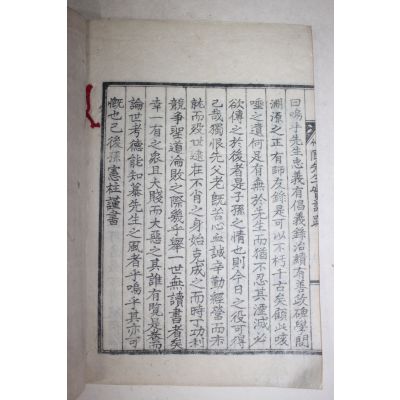 曰嗚乎先生忠義有倡義錄治績有善政碑學問
淵源之正有師友錄是可以不朽千古矣顧此咳
唾之遺何足有無於先生而猶不忍其湮滅必
欲傳之於後者是子孫之情也則今日之役可得
已哉獨恨先父老既苦心血誠辛勤經營而未
就而歿世遠在不肖之身始克成之而時丁功利
競爭聖道淪敗之際幾乎舉一世無讀書者矣
幸一有之衆且大賤而大惡之其誰有覽是卷而
論世考德能知慕先生之風者乎嗚乎其亦可
慨也已後孫憲柱謹書